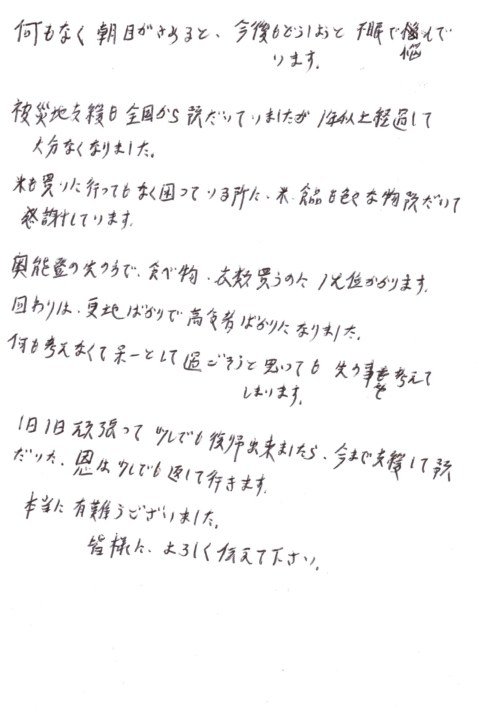 何もなく朝目がさめると、今後もどうしようと不眠で悩んで
悩
ります。
被災地支援も全国から頂だいていましたが1年以上経過して
大分なくなりました。
米も買いに行ってもなく困っている所に、米、食品も色々な物頂だいて
感謝しています。
奥能登の先の方で、食べ物、衣類買うのに1h位かかります。
回わりは、更地ばかりで高令者ばかりになりました。
何も考えなくて ボーとして過ごそうと思っても 先の事を考えて
を
しまります。
1日1日頑張って少しでも復帰出来ましたら、今まで支援して頂
だいた、恩は少しでも返して行きます。
本当に有難うございました。
皆様に、よろしく伝えて下さい。